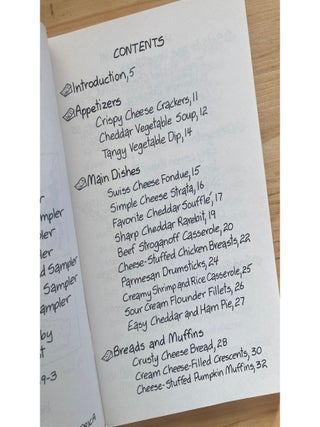 CONTENTS
Introduction, 5
Appetizers
Crispy Cheese Crackers, 11
Cheddar Vegetable Soup, 12
Tangy Vegetable Dip, 14
Main Dishes
Swiss Cheese Fondue, 15
Simple Cheese Strata, 16
Favorite Cheddar Souffle', 17
Sharp Cheddar Rarebit, 19
Beef Stroganoff Casserole, 20
Cheese-Stuffed Chicken Breasts, 22
Parmesan Drumsticks, 24
Creamy Shrimp and Rice Casserole, 25
Sour Cream Flounder Fillets, 26
Easy Cheddar and Ham Pie, 27
Breads and Muffins
Crusty Cheese Bread, 28
Cream Cheese-Filled Crescents, 30
Cheese-Stuffed Pumpkin Muffins, 32
Sampler
Sampler
by
9-3